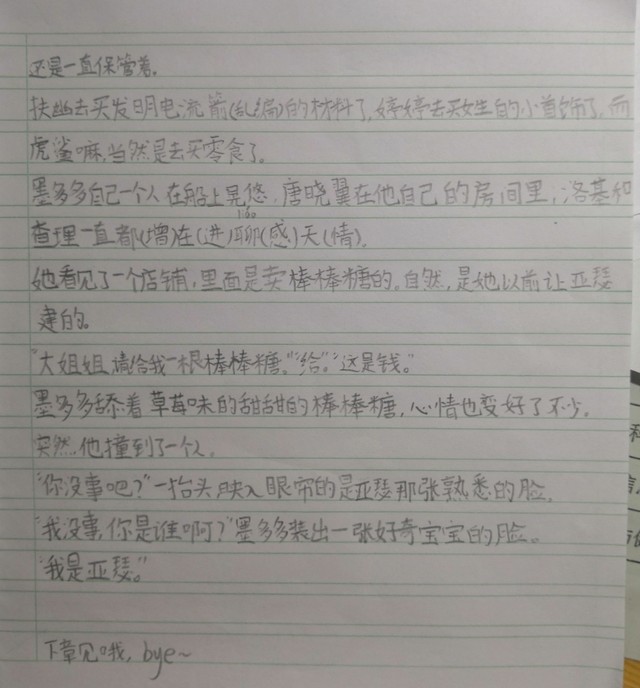 还是一直保管着。
扶幽去买发明电流箭(乱编)的材料了，婷婷去买女生的小首饰了，而
虎鲨嘛，当然是去买零食了。
墨多多自己一个人在船上晃悠，唐晓翼在他自己的房间里，洛基和
查理一直都(增)在(进)聊(感)天(情)。
她看见了一个店铺，里面是卖棒棒糖的。自然，是她以前让亚瑟
建的。
“大姐姐，请给我一根棒棒糖。”“给。”“这是钱。”
墨多多舔着草莓味的甜甜的棒棒糖，心情也变好了不少。
突然，他撞到了一个人。
“你没事吧？”一抬头，映入眼帘的是亚瑟那张熟悉的脸。
“我没事，你是谁啊？”墨多多装出一张好奇宝宝的脸。
“我是亚瑟。”
下章见哦，bye~